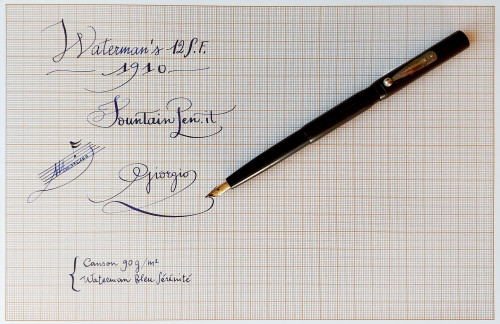 Waterman's 12 S.F.
1910
FountainPen.it
Giorgio
Canson 90g/m²
Waterman Bleu Sérénité